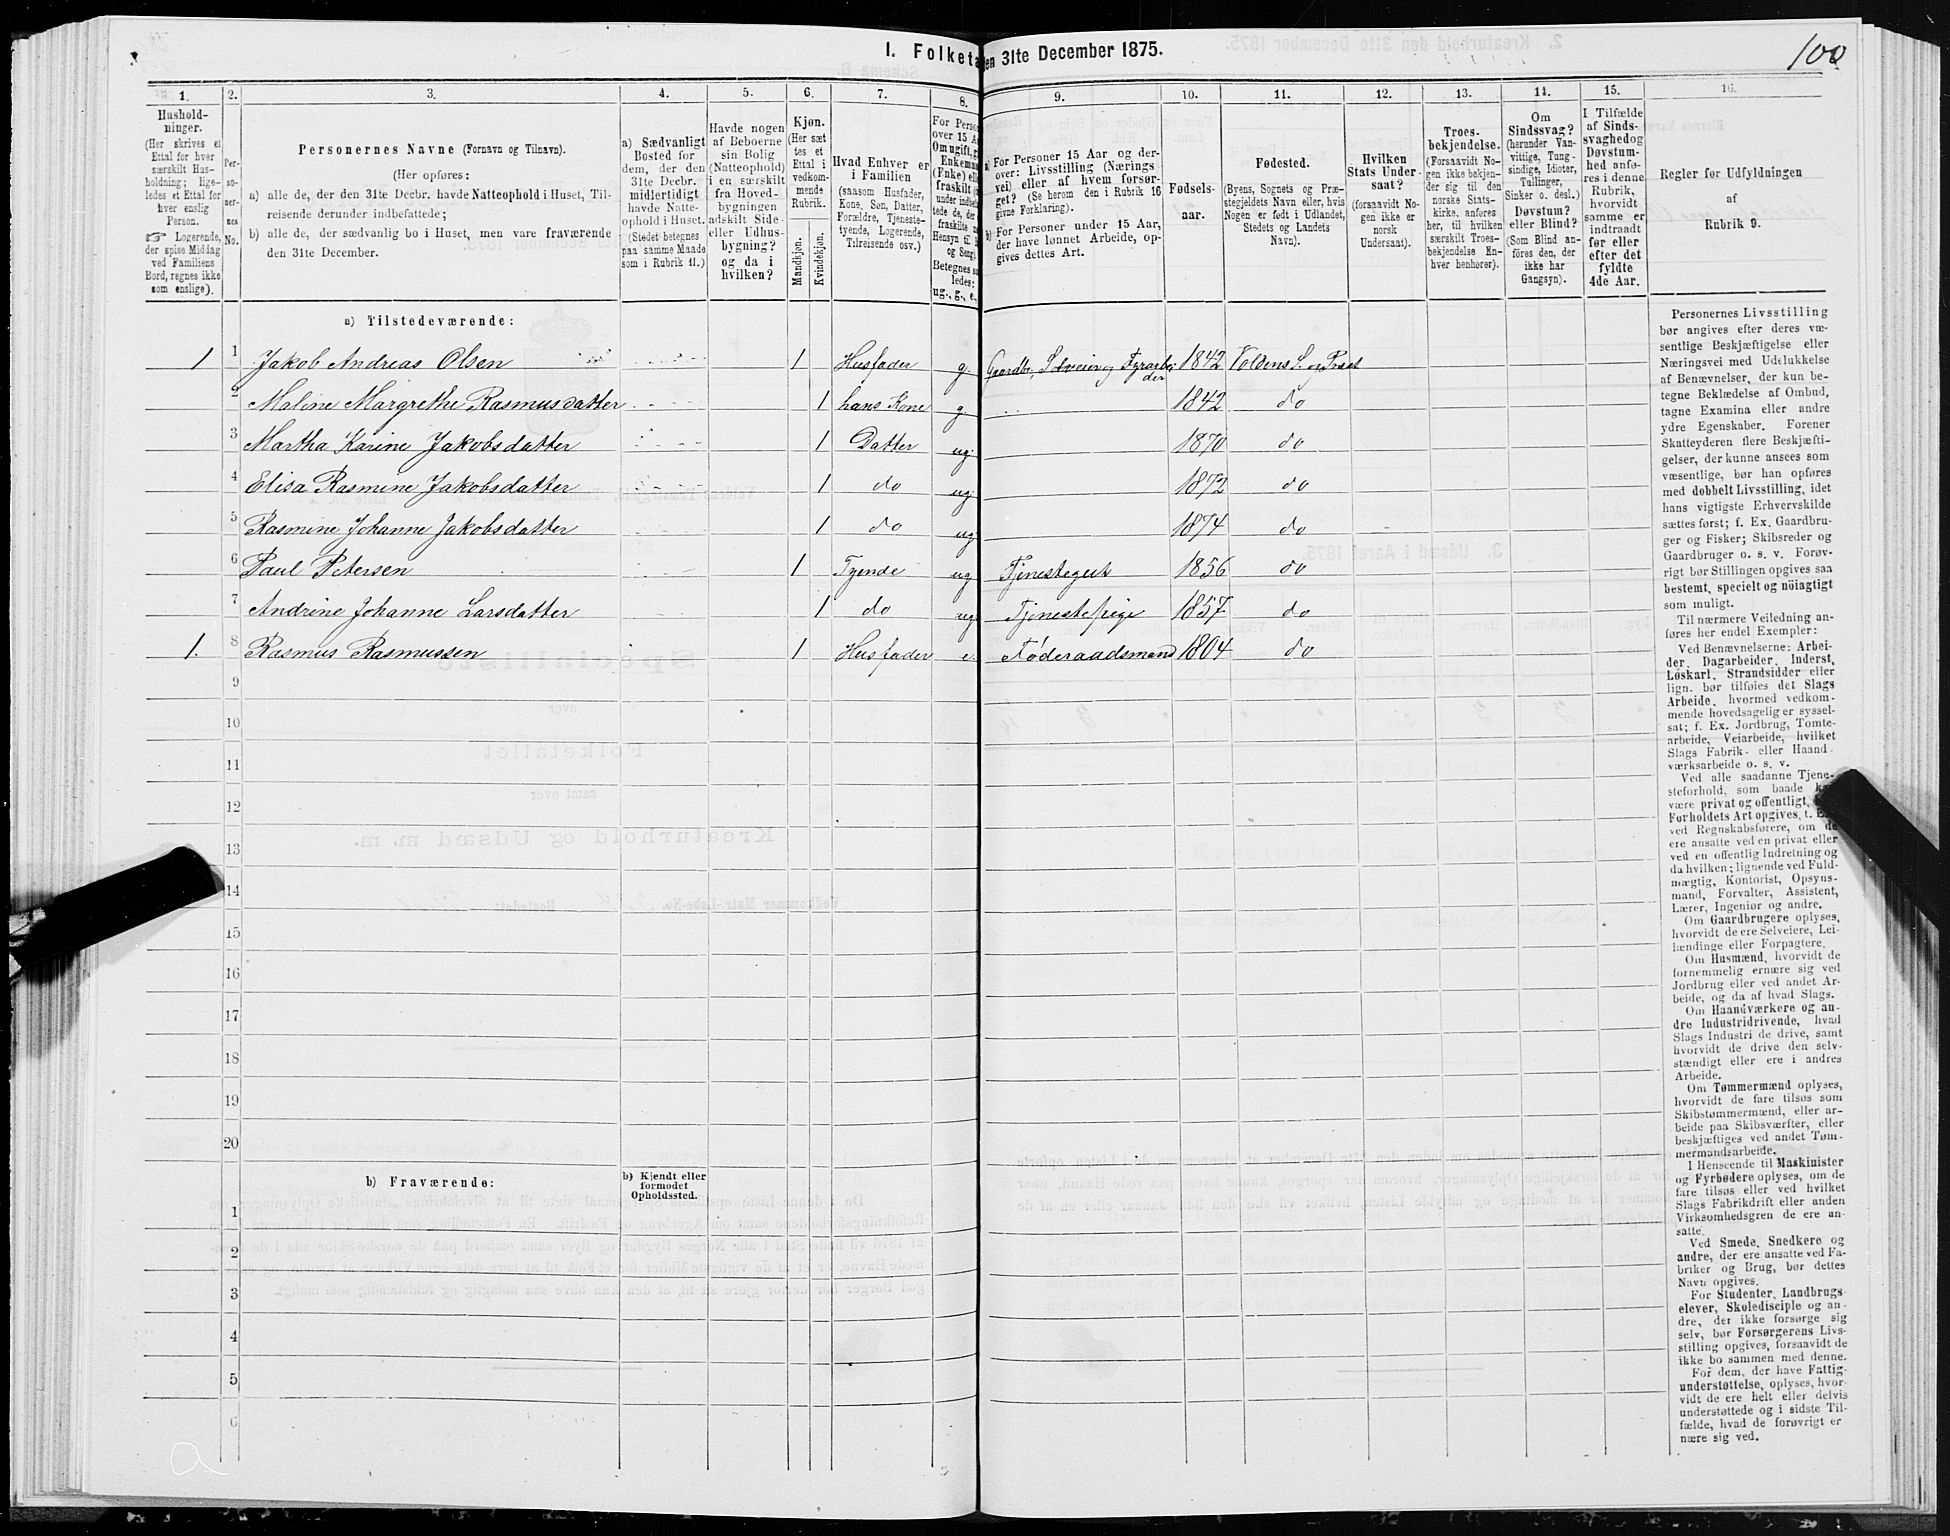 100
I. Folketa
en 31te December 1875.
1.
Hushold-
ninger.
(Her skrives et
Ettal for hver
særskilt Hus-
holdning; lige-
ledes et Ettal for
hver enslig
Person.
☞ Logerende,
der spise Middag
ved Familiens
Bord, regnes ikke
som enslige).
2.
Per-
so-
ner-
nes
No.
3.
Personernes Navne (Fornavn og Tilnavn).
(Her opføres:
a) alle de, der den 31te Decbr. havde Natteophold i Huset, Til-
reisende derunder indbefattede;
b) alle de, der sædvanlig bo i Huset, men vare fraværende
den 31te December.
4.
a) Sædvanligt
Bosted for
dem, der den
31te Decbr.
midlertidigt
havde Natte-
ophold i Huset.
(Stedet betegnes
paa samme Maade
som i Rubrik 11.)
5.
Havde nogen
af Beboerne
sin Bolig
(Natteophold)
i en særskilt
fra Hoved-
bygningen
adskilt Side-
eller Udhus-
bygning?
og da i
hvilken?
6.
Kjøn.
(Her sæt-
tes et
Ettal i
vedkom-
mende
Rubrik.
Mandkjøn.
Kvindekjøn.
7.
Hvad Enhver er
i Familien
(saasom Husfader,
Kone, Søn, Datter,
Forældre, Tjeneste-
tyende, Logerende,
Tilreisende osv.)
8.
For Person
over 15 Aa
Om ugift, g
Enkeman
(Enke) elle
fraskilt
under indbefat
tede de, der
fraskilte
Hensyn til
og Seng).
Betegnes s
ledes:
ug., g., e.,
9.
a) For Personer 15 Aar og der-
over: Livsstilling (Nærings-
vei) eller af hvem forsør-
get? (Se herom den i Rubrik 16
givne Forklaring).
b) For Personer under 15 Aar,
der have lønnet Arbeide, op-
gives dettes Art.
10.
Fødsels-
aar.
11.
Fødested.
(Byens, Sognets og Præ-
stegjeldets Navn eller, hvis
Nogen er født i Udlandet,
Stedets og Landets
Navn).
12.
Hvilken
Stats Under-
saat?
(forsaavidt No-
gen ikke er
norsk
Undersaat).
13.
Troes-
bekjendelse.
(Forsaavidt No-
gen ikke bekjen-
der sig til den
norske Stats-
kirke, anføres
her, til hvilken
særskilt Troes-
bekjendelse En-
hver henhører).
14.
Om
Sindssvag?
(herunder Van-
vittige, Tung-
sindige, Idioter,
Tullinger,
Sinker o. desl.)
Døvstum?
eller Blind?
(Som Blind an-
føres den, der
ikke har
Gangsyn).
15.
I Tilfælde
af Sinds-
svaghedog
Døvstum-
hed anfø-
res i denne
Rubrik,
hvorvidt
samme er
indtraadt
før eller
efter det
fyldte
4de Aar.
16.
Regler for Udfyldningen
af
Rubrik 9.
a) Tilstedeværende:
1 1 Jakob Andreas Olsen 1 Husfader g. Gaardbr., Selveier og Fyrarbei- 1842 Voldens S. og Præst
der
2 Maline Margrethe Rasmusdatter 1 hans Kone g. 1842 do
3 Martha Karine Jakobsdatter 1 Datter ug. 1870 do
4 Elisa Rasmine Jakobsdatter 1 do ug. 1872 do
5 Rasmine Johanne Jakobsdatter 1 do ug 1874 do
6 Paul Petersen 1 Tyende ug Tjenestegut 1856 do
7 Andrine Johanne Larsdatter 1 do ug. Tjenestepige 1857 do
1. 8 Rasmus Rasmussen 1 Husfader e. Føderaadsmand 1804 do
9
10
11
12
13
14
15
16
17
18
19
20
b) Fraværende:
b) Kjendt eller
formodet
Opholdssted.
1
2
3
4
5
6
Personernes Livsstilling
bør angives efter deres væ-
sentlige Beskjæftigelse eller
Næringsvei med Udelukkelse
af Benævnelser, der kun be-
tegne Beklædelse af Ombud,
tagne Examina eller andre
ydre Egenskaber. Forener
Skatteyderen flere Beskjæfti-
gelser, der kunne ansees som
væsentlige, bør han opføres
med dobbelt Livsstilling, idet
hans vigtigste Erhvervskilde
sættes først; f. Ex. Gaardbru-
ger og Fisker; Skibsreder og
Gaardbruger o. s. v. Forøv-
rigt bør Stillingen opgives saa
bestemt, specielt og nöiagtigt
som muligt.
Til nærmere Veiledning an-
føres her endel Exempler:
Ved Benævnelserne: Arbei-
der, Dagarbeider, Inderst,
Løskarl, Strandsidder eller
lign. bør tilføies det Slags
Arbeide, hvormed vedkom-
mende hovedsagelig er syssel-
sat; f. Ex. Jordbrug, Tomte-
arbeide, Veiarbeide, hvilket
Slags Fabrik- eller Haand-
værksarbeide o. s. v.
Ved alle saadanne Tjene-
steforhold, som baade k
være privat og offentligt,
Forholdets Art opgives, t. E
ved Regnskabsførere, om de
ere ansatte ved en privat eller
ved en offentlig Indretning og
da hvilken; lignende ved Fuld-
mægtig, Kontorist, Opsyns-
mand, Forvalter, Assistent,
Lærer, Ingeniør og andre.
Om Gaardbrugere oplyses,
hvorvidt de ere Selveiere, Lei-
lændinge eller Forpagtere.
Om Husmænd, hvorvidt de
fornemmelig ernære sig ved
Jordbrug eller ved andet Ar-
beide, og da af hvad Slags.
Om Haandværkere og an-
dre Industridrivende, hvad
Slags Industri de drive, samt
hvorvidt de drive den selv-
stændigt eller ere i andres
Arbeide.
Om Tømmermænd oplyses,
hvorvidt de fare tilsøs som
Skibstømmermænd, eller ar-
beide paa Skibsværfter, eller
beskjæftiges ved andet Tøm-
mermandsarbeide.
I Henseende til Maskinister
og Fyrbødere oplyses, om de
fare tilsøs eller ved hvilket
Slags Fabrikdrift eller anden
Virksomhedsgren de ere an-
satte.
Ved Smede, Snedkere og
andre, der ere ansatte ved Fa-
briker og Brug, bør dettes
Navn opgives.
For Studenter, Landbrugs-
elever, Skoledisciple og an-
dre, der ikke forsørge sig
selv, bør Forsørgerens Livs-
stilling opgives, forsaavidt de
ikke bo sammen med denne.
For dem, der have Fattig-
understøttelse, oplyses, hvor-
vidt de ere helt eller delvis
understøttede og i sidste Til-
fælde, hvad de forøvrigt er
nære sig ved.